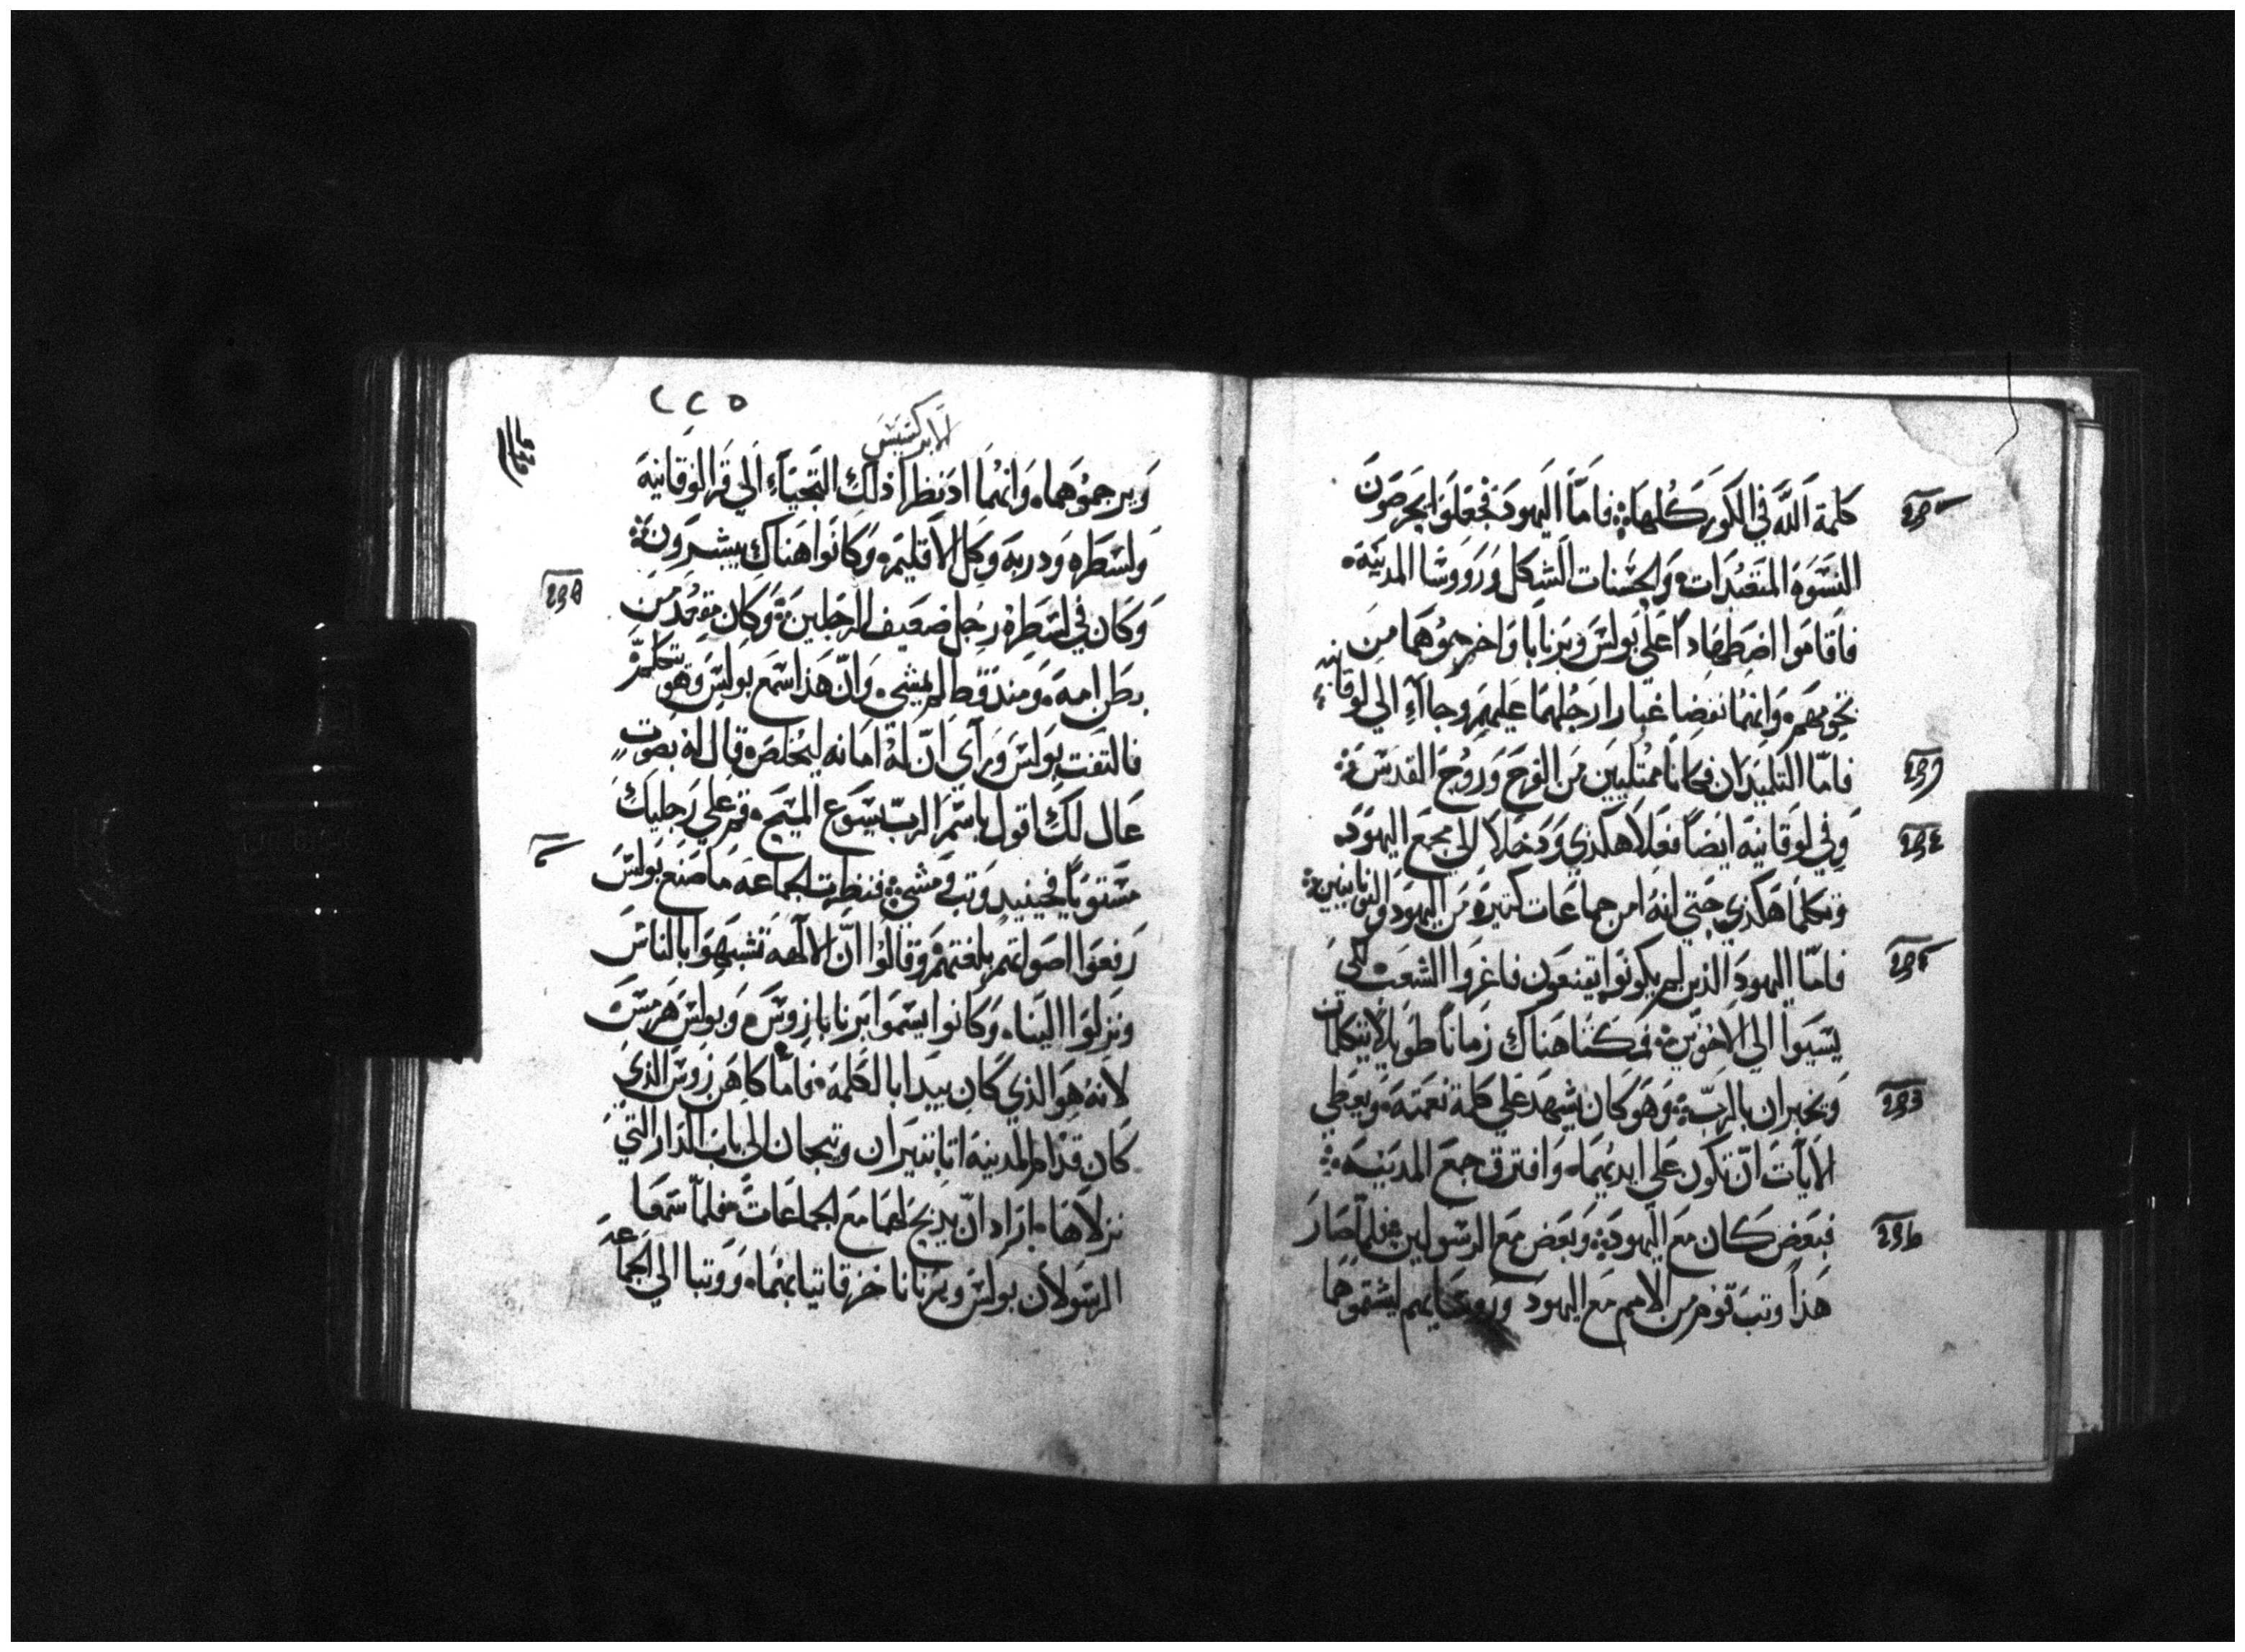 كلمة الله في الكور كلها فاما اليهود فجعلوا يحرصون
النسوه المتعبدات والحسنات الشكل ورووسا المدينه
فاقاموا اضطهاداً علي بولس وبرنابا واخرجوهما من
تخومهم وانهما نفضا غبار ارجلهما عليهم وجاآء الي لوقانيه
فامّا التلميذان فكانا ممتليين من الفرح وروح القدس
وفي لوقانيه ايضاً فعلا هكذي ودخلا الي مجمع اليهود
وتكلما هكذي حتي انه امن جماعات كتيره من اليهود واليونانيين
فامّا اليهود الذين لم يكونوا يتبعون فاغروا الشعب لكي
يسيوا الي الاخوين فمكثنا هناك زماناً طويلا يتكلمان
ويخبران بالربّ وهو كان يشهد علي كلمة نعمته ويعطي
الايات انّ تكون علي ايديهما وافترق جمع المدينه
فبعض كان مع اليهود وبعض مع الرسولين فلمّا صار
هذا وتب قوم من الامم مع اليهود وروسايهم ليشتموهما
٢٢٥
الابركسيس
ويرجموهما وانهما اد نظرا ذلك التجياء الي قرا لوقانيه
ولسطره ودربه وكل الاقليم وكانوا هناك يبشرون
وكان في لسطره رجل ضعيف الرجلين وكان مقعد من
بطن امه ومند قط لم يمشي وانّ هذا سمع بولس وهو يتكلم
فالتفت بولس وراي انّ له امانه ليخلص قال له بصوت
عال لك اقول باسم الربّ يسوع المسيح قم علي رجليك
مستوياً فحينيد وتب ومشي فنظرت الجماعه ما صنع بولس
رفعوا اصواتهم بلغتهم وقالوا انّ الالهه تشبهوا بالناس
ونزلوا الينا وكانوا يسموا برنابا زوس وبولس هرمس
لانه هو الذي كان يبدا بالكلمه فاما كاهن زوس الذي
كان قدام المدينه اتا بتيران وتيجان الي باب الدار التي
نزلاها اراد انّ يدبح لهما مع الجماعات فلمّا سمعا
الرسولان بولس وبرنابا خرقا تيابهما ووتبا الي الجماعه